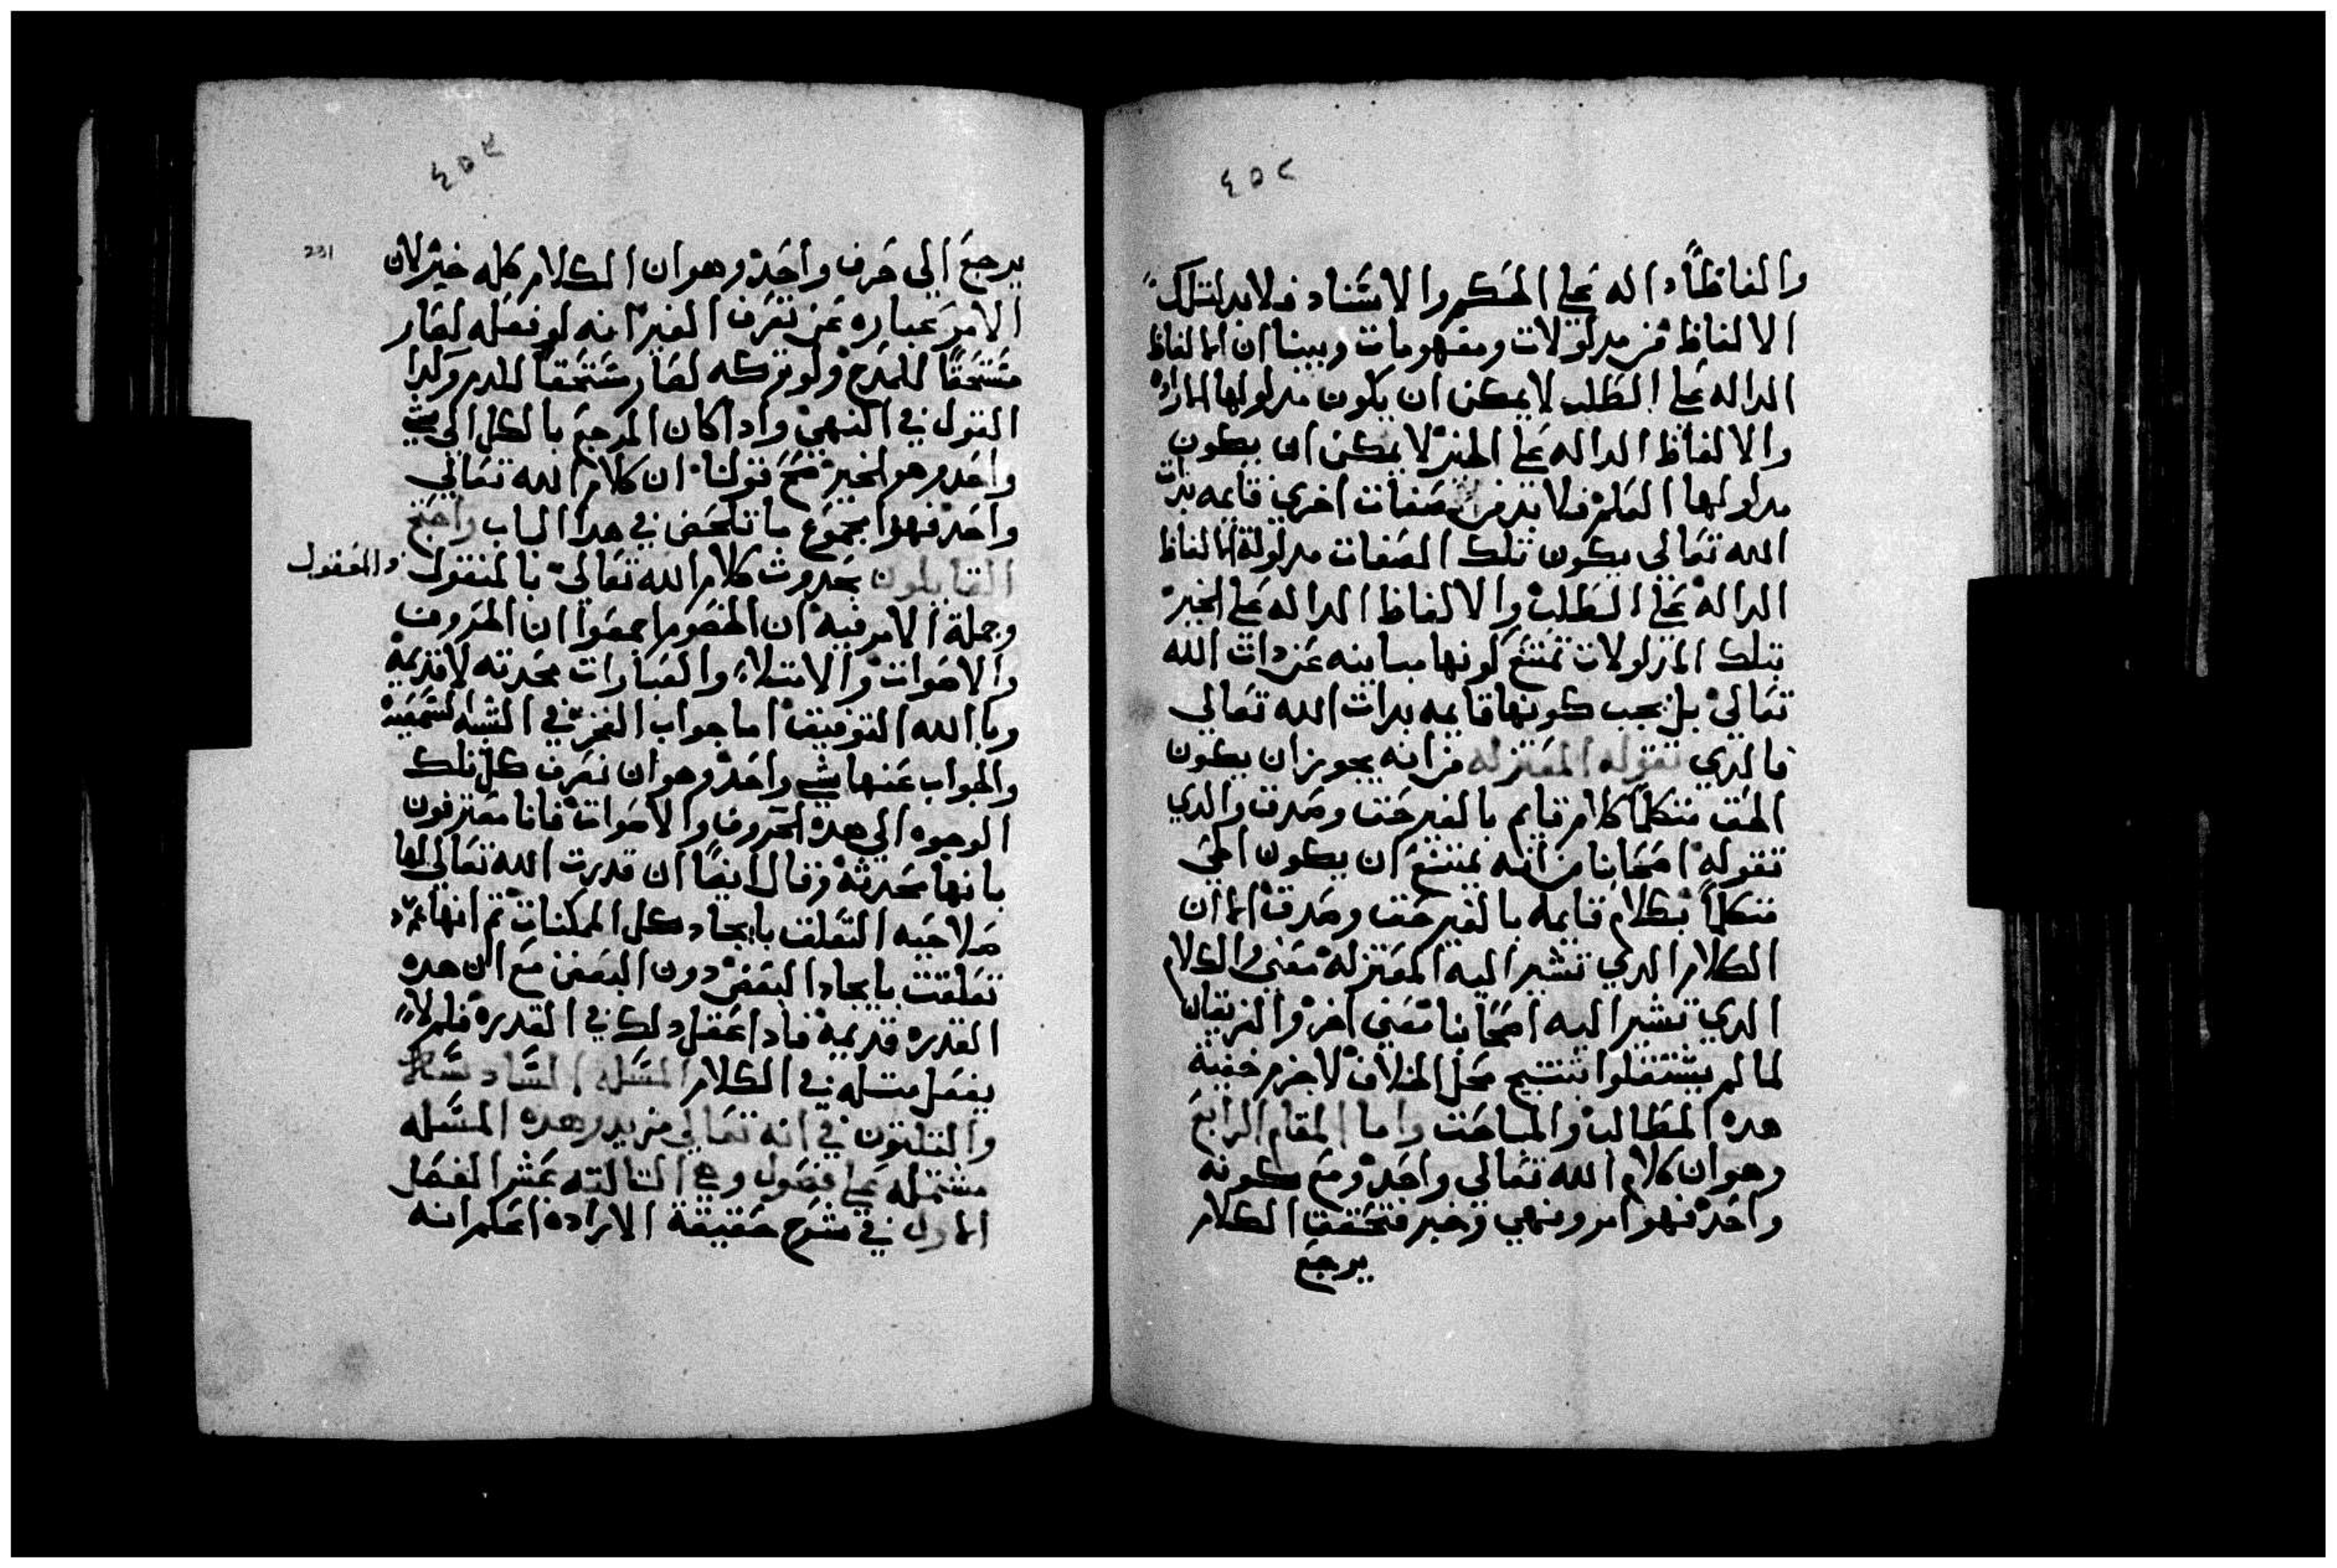 ٤٥٢
والفاظًا داله على الحكم والاسناد فلا بد لتلك
الالفاظ من مدلولات ومفهومات وبينا ان الالفاظ
الداله على الطلب لا يمكن ان يكون مدلولها الاراده
والالفاظ الداله على الخبر لا يمكن ان يكون
مدلولها العلم فلا بد من صفات اخري قايمه بذات
الله تعالي يكون تلك الصفات مدلولة الالفاظ
الدالة على الطلب والالفاظ الداله على الخبر
بتلك المدلولات تمتنع كونها مباينه عن دات الله
تعالي بل يجب كونها قايمه بدات الله تعالي
فالدي تقوله المعتزله من انه يجوز ان يكون
الحق متكلمًا كلام قايم بالغير حق وصدق والدي
تقوله اصحابنا من انه يمتنع ان يكون الحي
متكلمًا بكلام قايمه بالغير حق وصدق الا ان
الكلام الدي تشير اليه المعتزلة معني والكلام
الدي تشير اليه اصحابنا معني اخر والفريقان
لما لم يشتغلوا بتنتيج محل الخلاف لا جزم خفية
هده المطالب والمباحث واما المقام الرابع
وهو ان كلام الله تعالي واحد ومع كونه
واحد فهو امر ونهي وخبر فتحقق الكلام
يرجع
٤٥٣
231
يرجع الي حرف واحد وهو ان الكلام كله خبر لان
الامر عباره عن تعرف الغير انه لو فعله لصار
مستحقًا للمدح ولو تركه لصار مستحقًا للدم وكدا
القول في النهي وادا كان المرجع بالكل الي شي
واحد وهو الخبر صح قولنا ان كلام الله تعالي
واحد فهوا مجموع ما تلخص في هدا الباب واحتج
القايلون بحدوث كلام الله تعالي بالمنقول والمعقول
وجملة الامر فيه ان الخصوم اجمعوا ان الحروف
والاصوات والامتلاء والعبارات محدثه لا قديمة
وبا الله التوفيق اما جواب الفخر في الشبه السمعية
والجواب عنها شي واحد وهو ان نصرف كل تلك
الوجوه الي هده الحروف والاصوات فانا معترفون
بانها محدثة وقال ايضًا ان قدرت الله تعالي لها
صلاحيه التعلق بايجاد كل الممكنات ثم انها
تعلقت بايجاد البعض دون البعض مع ان هده
القدرة قديمة فادا عقل دلك في القدرة فلم لا
يعقل مثله في الكلام المسله السادسه
والتلتون في انه تعالي مريد وهده المسله
مشتمله على فصول وهي التالته عشر الفصل
الاول في شرح حقيقة الاراده اعلم انه